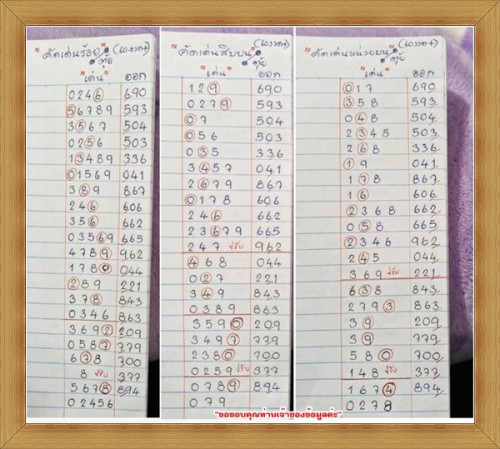 "คัดเด่นร้อย" (เอวจต+)
ตุ้ย
"เด่น" ออก
0246 690
56789 593
3567 504
0256 503
13489 336
01569 041
389 867
246 606
356 662
03569 665
4789 962
1780 044
289 221
378 843
0346 863
3692 209
0587 779
678 700
8 377
5678 894
02456
"คัดเด่นสิบบน"
ตุ้ย
"เด่น" ออก
129 690
0279 593
07 504
056 503
035 336
3457 041
2679 867
0178 606
246 662
23679 665
247 962
468 044
027 221
349 843
0389 863
3590 209
3497 779
2380 700
0259 377
0789 894
079
"คัดเด่นหน่วยบน"
ตุ้ย
"เด่น" ออก
017 690
358 593
048 504
2345 503
268 336
19 041
178 867
16 606
2368 662
058 665
2346 962
245 044
369 221
638 843
2793 863
39 209
39 779
580 700
148 377
1674 894
0278
"ขอขอบคุณท่านเจ้าของข้อมูลค่ะ"